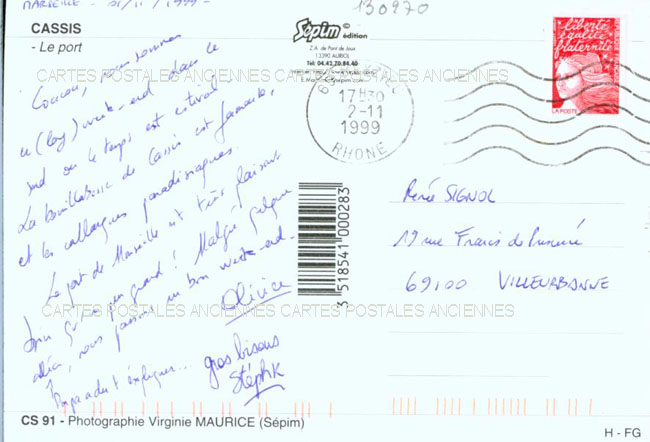 MARSEILLE - 01/11/1999 -
130970
CASSIS
- Le port
Sepim © édition
Z.A. de Pont de Joux
13390 AURIOL
Tél: 04.42.70.84.40
Coucou, nous sommes
ce (long) week-end dans le
sud où le temps est estival.
La bouillabesse de Cassis est fameuse,
et les callanques paradisiaques.
Le port de Marseille est très plaisant
bien qu'un peu grand! Malgré quelques
nous passons un bon week-end.
Olivier
Papa doit t'expliquer...
gros bisous
Stéph
17H30
2-11
1999
RHONE
liberté
égalité
fraternité
LA POSTE
3 518541 000283
Renée SIGNOL
19 rue Francis de Pressensé
69100 VILLEURBANNE
CARTES POSTALES ANCIENNES CARTES POSTALES ANCIENNES CARTES POSTALES ANCIENNES
CARTES POSTALES ANCIENNES CARTES POSTALES ANCIENNES
CS 91 - Photographie Virginie MAURICE (Sépim)
H - FG